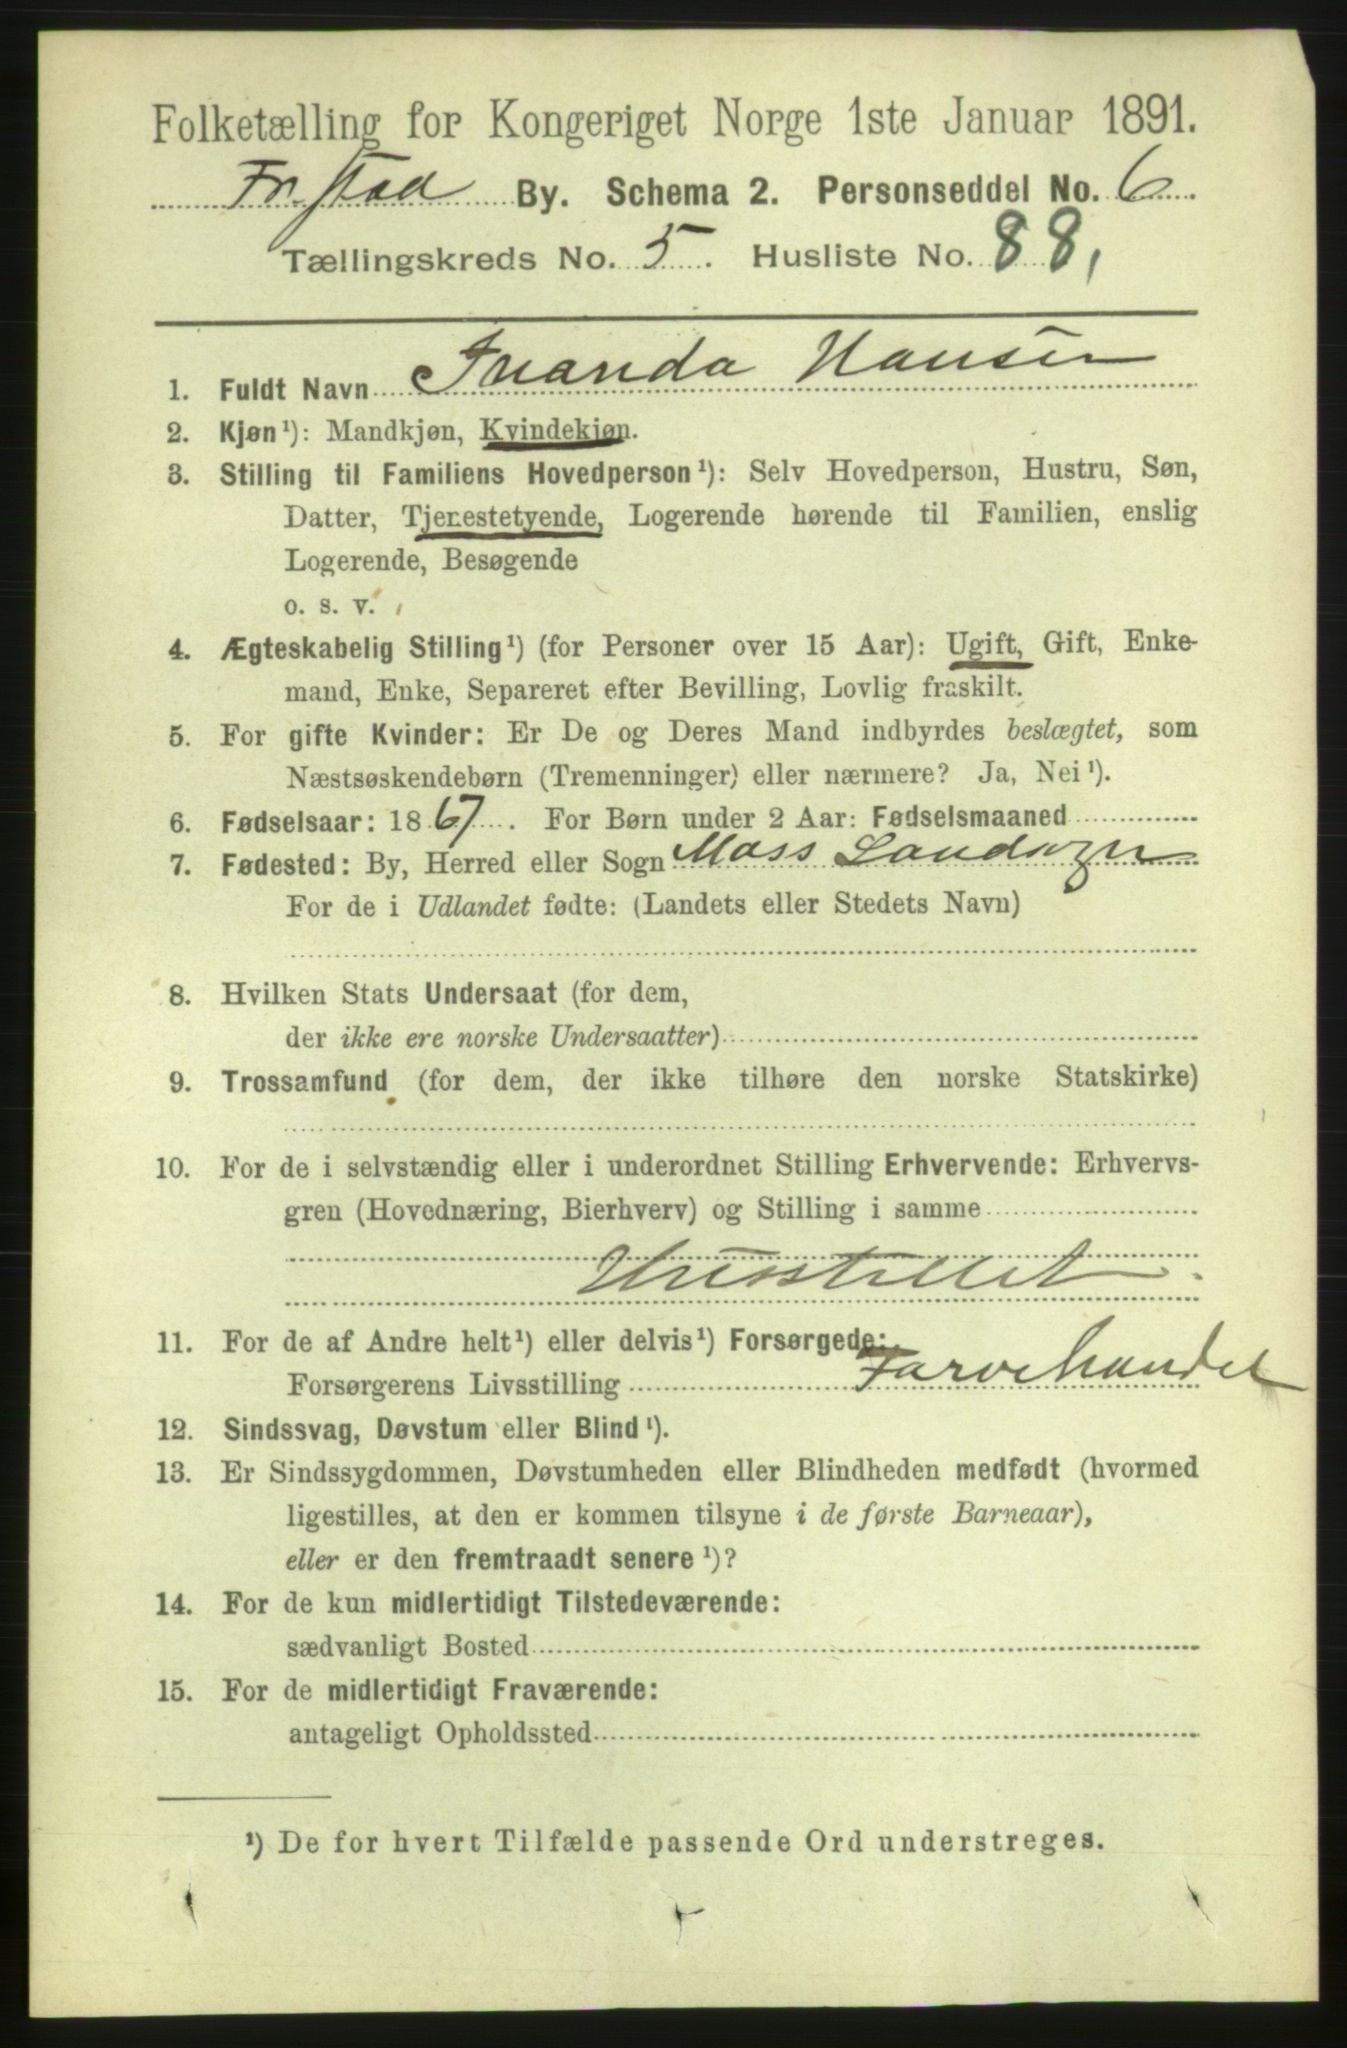 Folketælling for Kongeriget Norge 1ste Januar 1891.
Fr.stad By. Schema 2. Personseddel No. 6
Tællingskreds No. 5. Husliste No. 88,
1. Fuldt Navn Hansen
2. Kjøn¹): Mandkjøn, Kvindekjøn.
3. Stilling til Familiens Hovedperson¹): Selv Hovedperson, Hustru, Søn,
Datter, Tjenestetyende, Logerende hørende til Familien, enslig
Logerende, Besøgende
o. s. v.
4. Ægteskabelig Stilling¹) (for Personer over 15 Aar): Ugift, Gift, Enke-
mand, Enke, Separeret efter Bevilling, Lovlig fraskilt.
5. For gifte Kvinder: Er De og Deres Mand indbyrdes beslægtet, som
Næstsøskendebørn (Tremenninger) eller nærmere? Ja, Nei¹).
6. Fødselsaar: 1867. For Børn under 2 Aar: Fødselsmaaned
7. Fødested: By, Herred eller Sogn Moss Landsogn
For de i Udlandet fødte: (Landets eller Stedets Navn)
8. Hvilken Stats Undersaat (for dem,
der ikke ere norske Undersaatter)
9. Trossamfund (for dem, der ikke tilhøre den norske Statskirke)
10. For de i selvstændig eller i underordnet Stilling Erhvervende: Erhvervs-
gren (Hovednæring, Bierhverv) og Stilling i samme
Husstellet
11. For de af Andre helt¹) eller delvis¹) Forsørgede:
Forsørgerens Livsstilling Farvehandel
12. Sindssvag, Døvstum eller Blind¹).
13. Er Sindssygdommen, Døvstumheden eller Blindheden medfødt (hvormed
ligestilles, at den er kommen tilsyne i de første Barneaar),
eller er den fremtraadt senere¹)?
14. For de kun midlertidigt Tilstedeværende:
sædvanligt Bosted
15. For de midlertidigt Fraværende:
antageligt Opholdssted
¹) De for hvert Tilfælde passende Ord understreges.